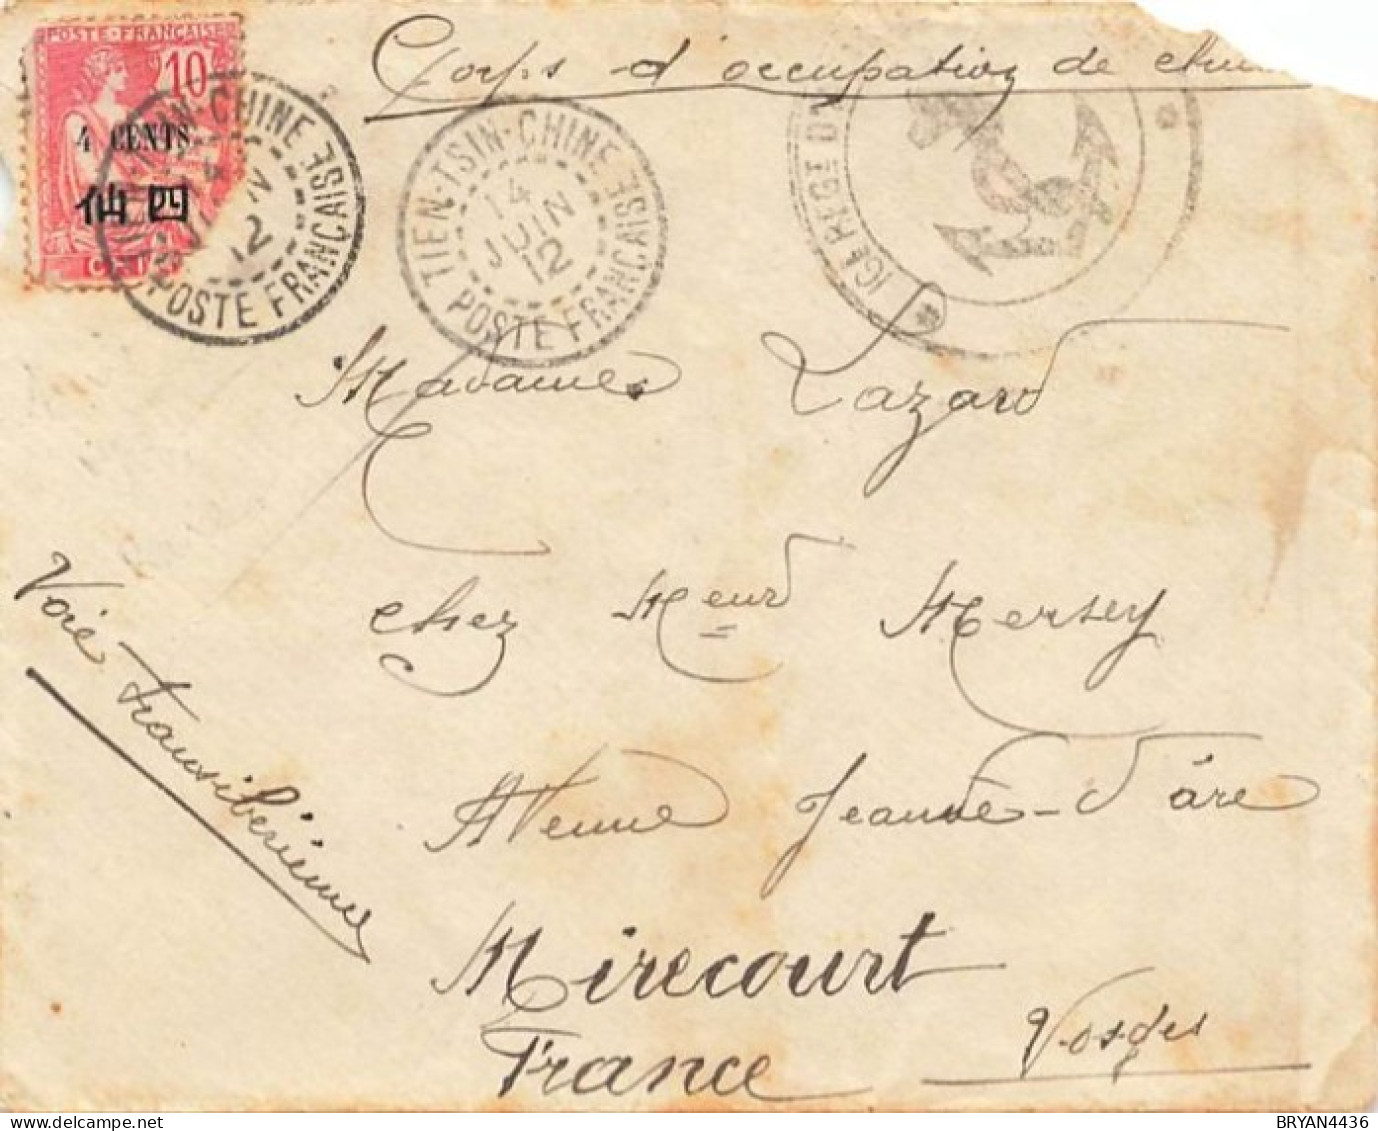 Corps d'occupation de
POSTE FRANÇAISE
10
4 CENTS
仙四
TIEN-TSIN-CHINE
14
JUIN
12
POSTE FRANÇAISE
TIEN-TSIN-CHINE
14
JUIN
12
POSTE FRANÇAISE
* 16E REGT D'
Madame Lazard
chez Meur Mersey
Avenue Jeanne-d'arc
Voie transibérienne
Mirecourt
Vosges
France
BRYAN4436